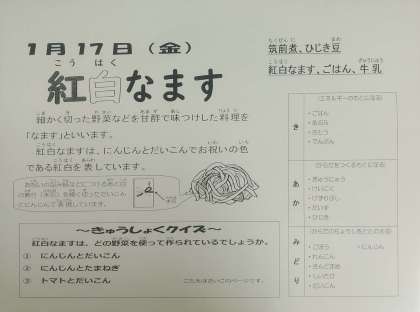 1月17日（金）
紅白なます
細かく切った野菜などを甘酢で味つけした料理を
「なます」といいます。
紅白なますは、にんじんとだいこんでお祝いの色
である紅白を表しています。
～きゅうしょくクイズ～
紅白なますは、どの野菜を使って作られているでしょうか。
① にんじんとだいこん
② にんじんとたまねぎ
③ トマトとだいこん
筑前煮、ひじき豆
紅白なます、ごはん、牛乳
き
・ごはん
・さとう
・でんぷん
あか
・ぎゅうにゅう
・とりにく
・だいず
・ひじき
みどり
・ごぼう ・にんじん
・れんこん
・さんどまめ
・しいたけ
・だいこん